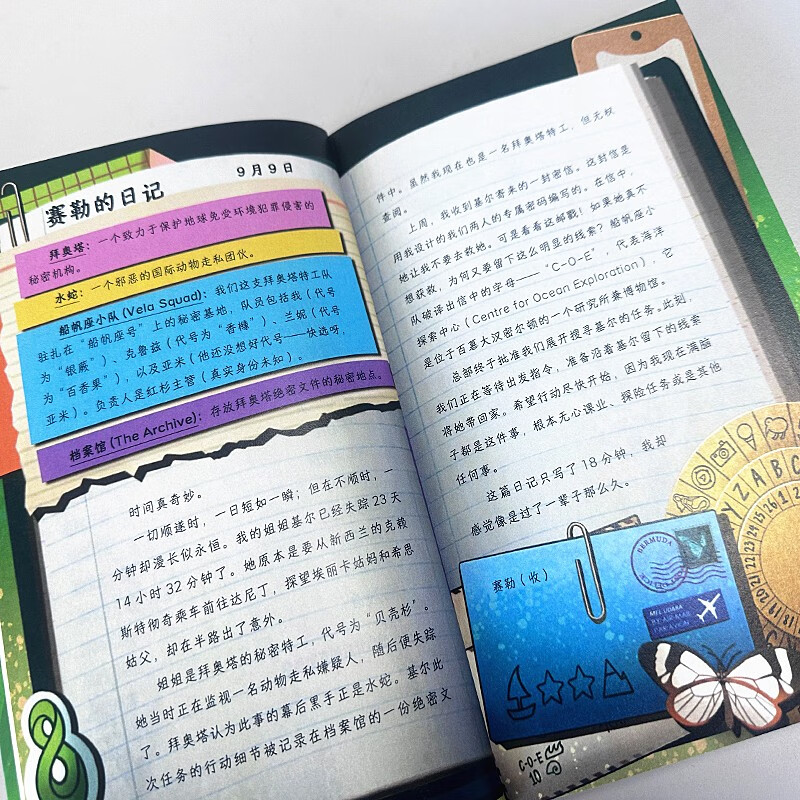 赛勒的日记
9月9日
拜奥塔：一个致力于保护地球免受环境犯罪侵害的
秘密机构。
水蛇：一个邪恶的国际动物走私团伙。
船帆座小队(Vela Squad)：我们这支拜奥塔特工队
驻扎在“船帆座号”上的秘密基地，队员包括我（代号
为“银蕨”）、克鲁兹（代号为“香槐”）、兰妮（代号
为“百香果”），以及亚米（他还没想好代号——快选呀，
亚米）。负责人是红杉主管（真实身份未知）。
档案馆(The Archive)：存放拜奥塔绝密文件的秘密地点。
时间真奇妙。
一切顺遂时，一日短如一瞬；但在不顺时，一
分钟却漫长似永恒。我的姐姐基尔已经失踪23天
14小时32分钟了。她原本是要从新西兰的克赖
斯特彻奇乘车前往达尼丁，探望埃丽卡姑妈和希恩
姑父，却在半路出了意外。
姐姐是拜奥塔的秘密特工，代号为“贝壳杉”。
她当时正在监视一名动物走私嫌疑人，随后便失踪
了。拜奥塔认为此事的幕后黑手正是水蛇。基尔此
次任务的行动细节被记录在档案馆的一份绝密文
件中。虽然我现在也是一名拜奥塔特工，但无权
查阅。
上周，我收到基尔寄来的一封密信。这封信是
用我设计的我们两人的专属密码编写的。在信中，
她让我不要去救她。可是看看这邮戳！如果她真不
想获救，为何又要留下这么明显的线索？船帆座小
队破译出信中的字母——“C-O-E”，代表海洋
探索中心(Centre for Ocean Exploration)，它
是位于百慕大汉密尔顿的一个研究所兼博物馆。
总部终于批准我们展开搜寻基尔的任务。此刻，
我们正在等待出发指令，准备沿着基尔留下的线索
将她带回家。希望行动尽快开始，因为我现在满脑
子都是这件事，根本无心课业、探险任务或是其他
任何事。
这篇日记只写了18分钟，我却
感觉像是过了一辈子那么久。
赛勒（收）
BERMUDA
MEL UDARA
BY AIR MAIL
PAR AVION
C-O-E
10
Y Z A B C
22 23 24 25 26 1 2
8